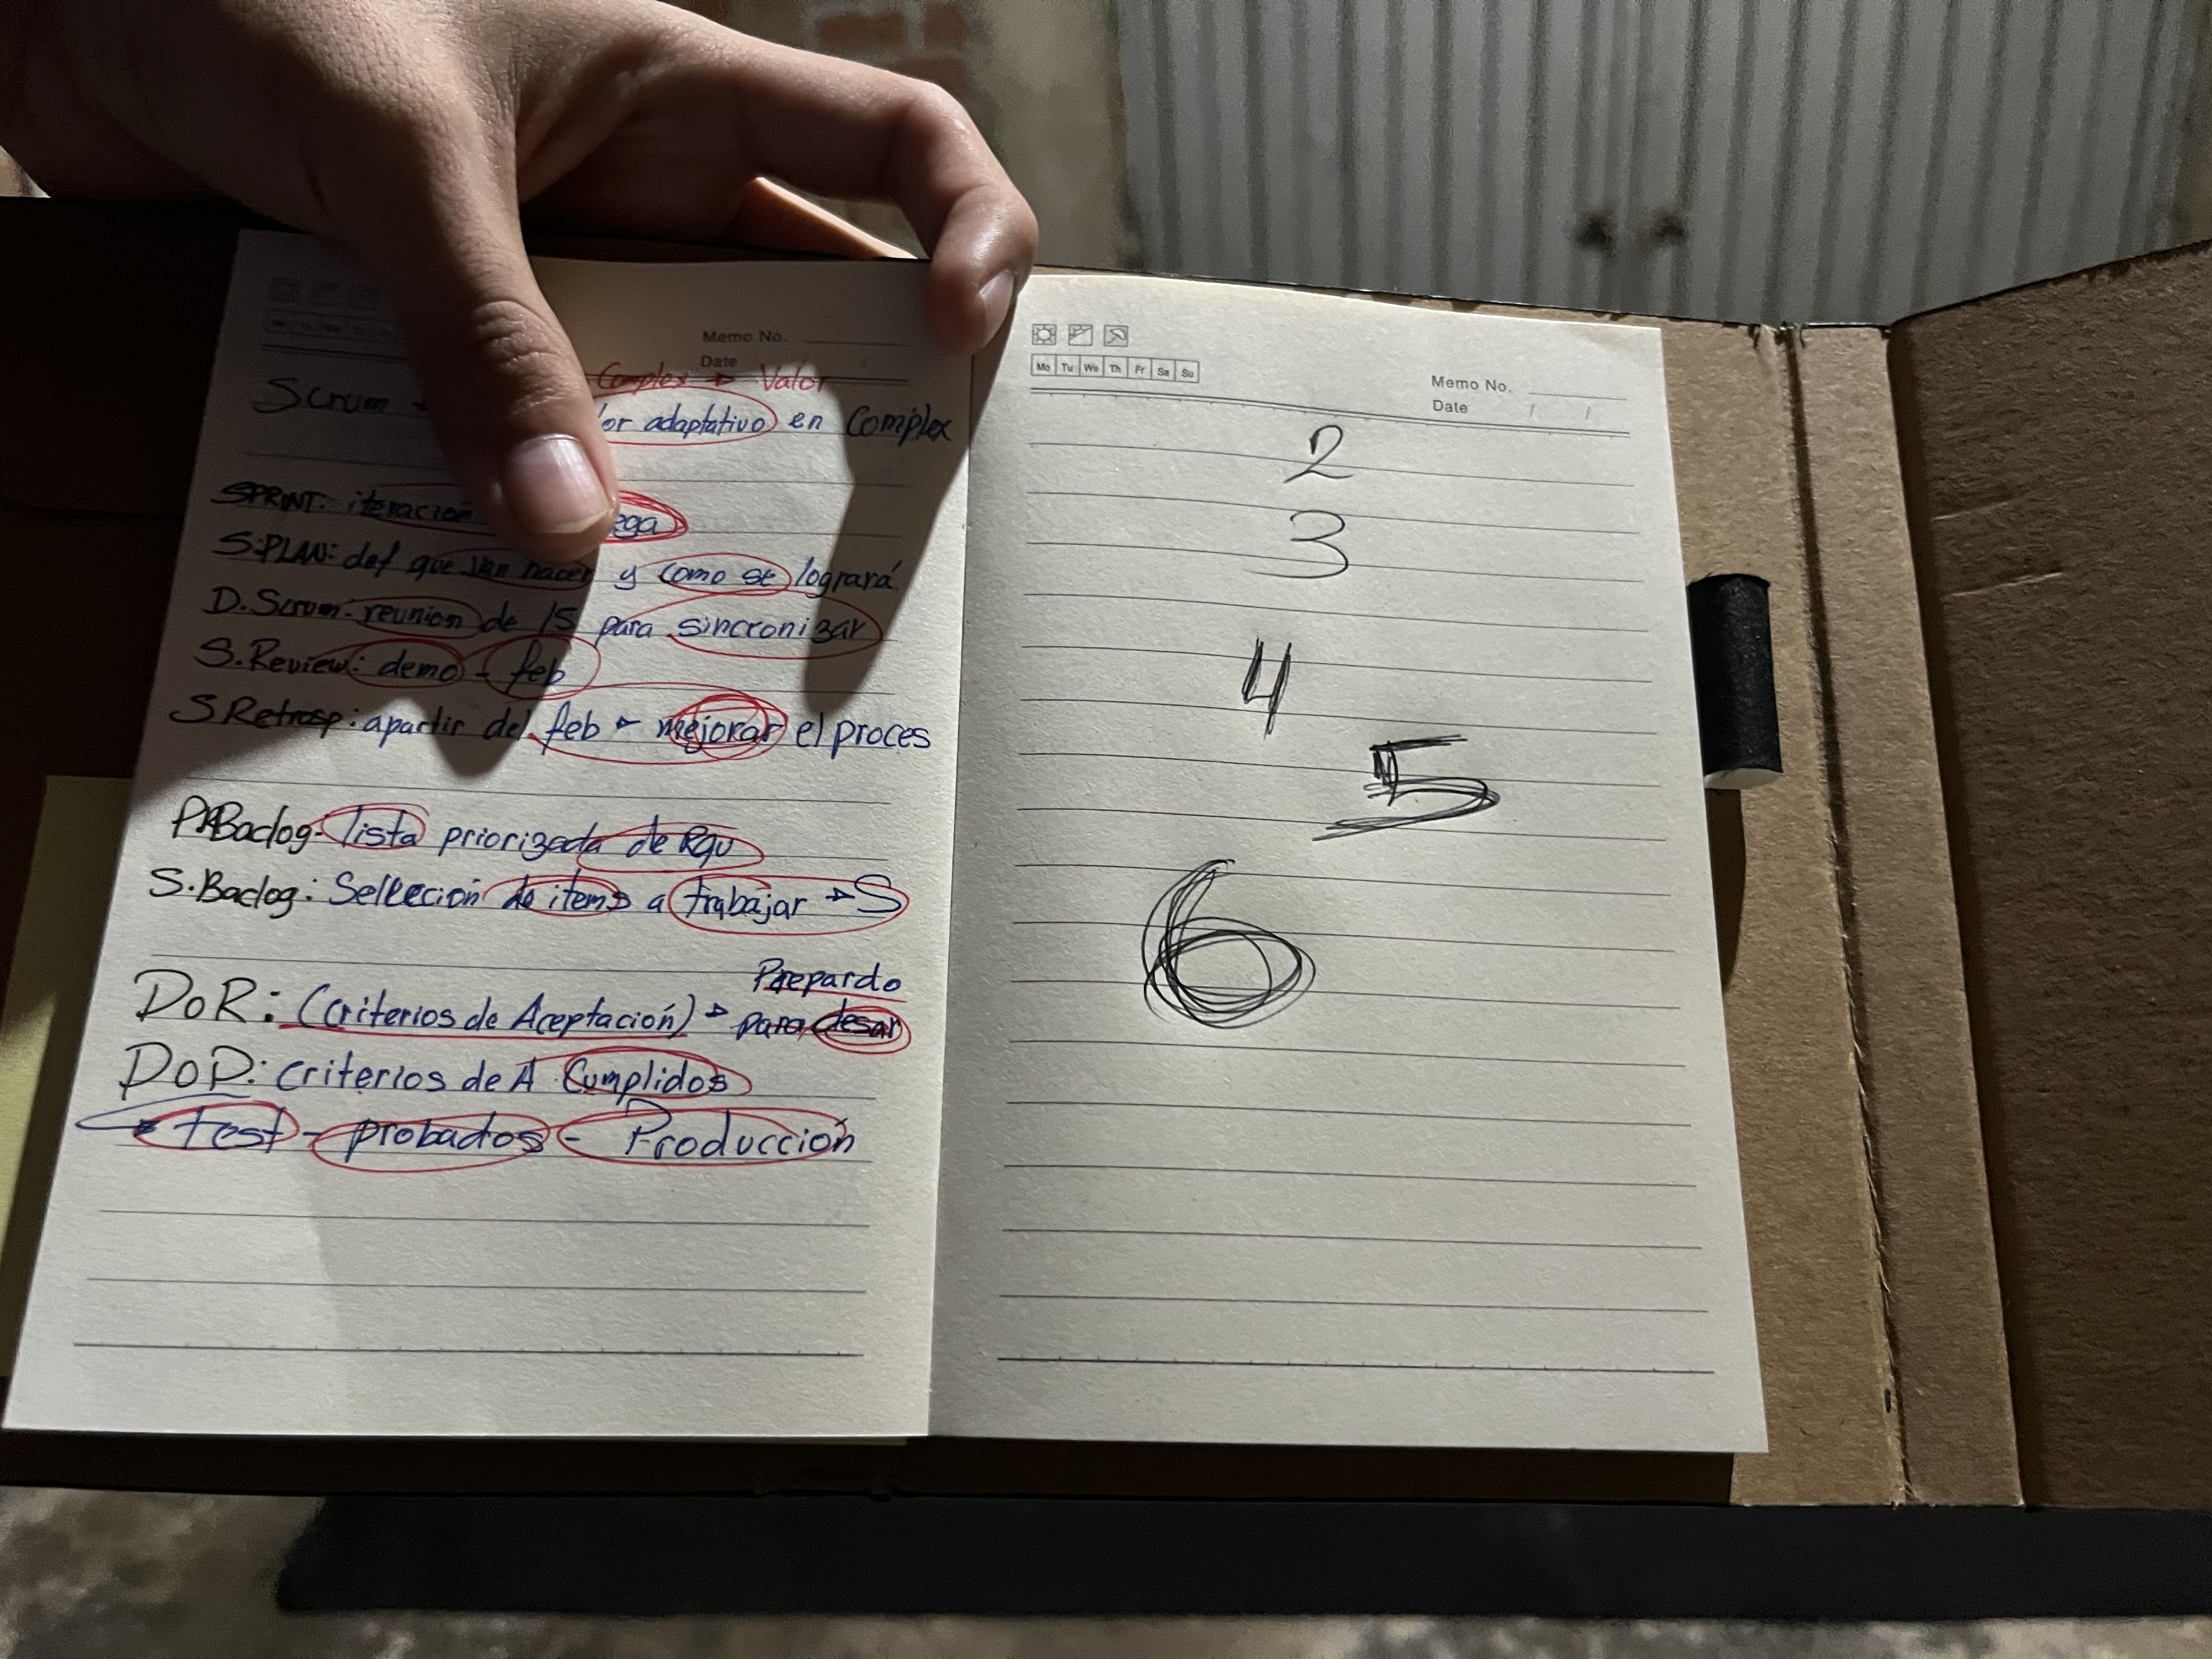 Memo No.
Date
Complex → Valor
Scrum or adaptativo en Complex
SPRINT: iteracion ega
S.PLAN: def que van hacer y como se logrará
D.Scrum: reunion de 15 para sincronizar
S.Review: demo - feb
S Retrosp: apartir del feb → mejorar el proces
P.Baclog- lista priorizada de Rqu
S.Baclog: Seleecion de items a trabajar → S
Prepardo
DoR: (Criterios de Aceptación) → para desar
DoD: criterios de A Cumplidos
→ test - probados - Producción
Mo Tu We Th Fr Sa Su
Memo No.
Date / /
2
3
4
5
6